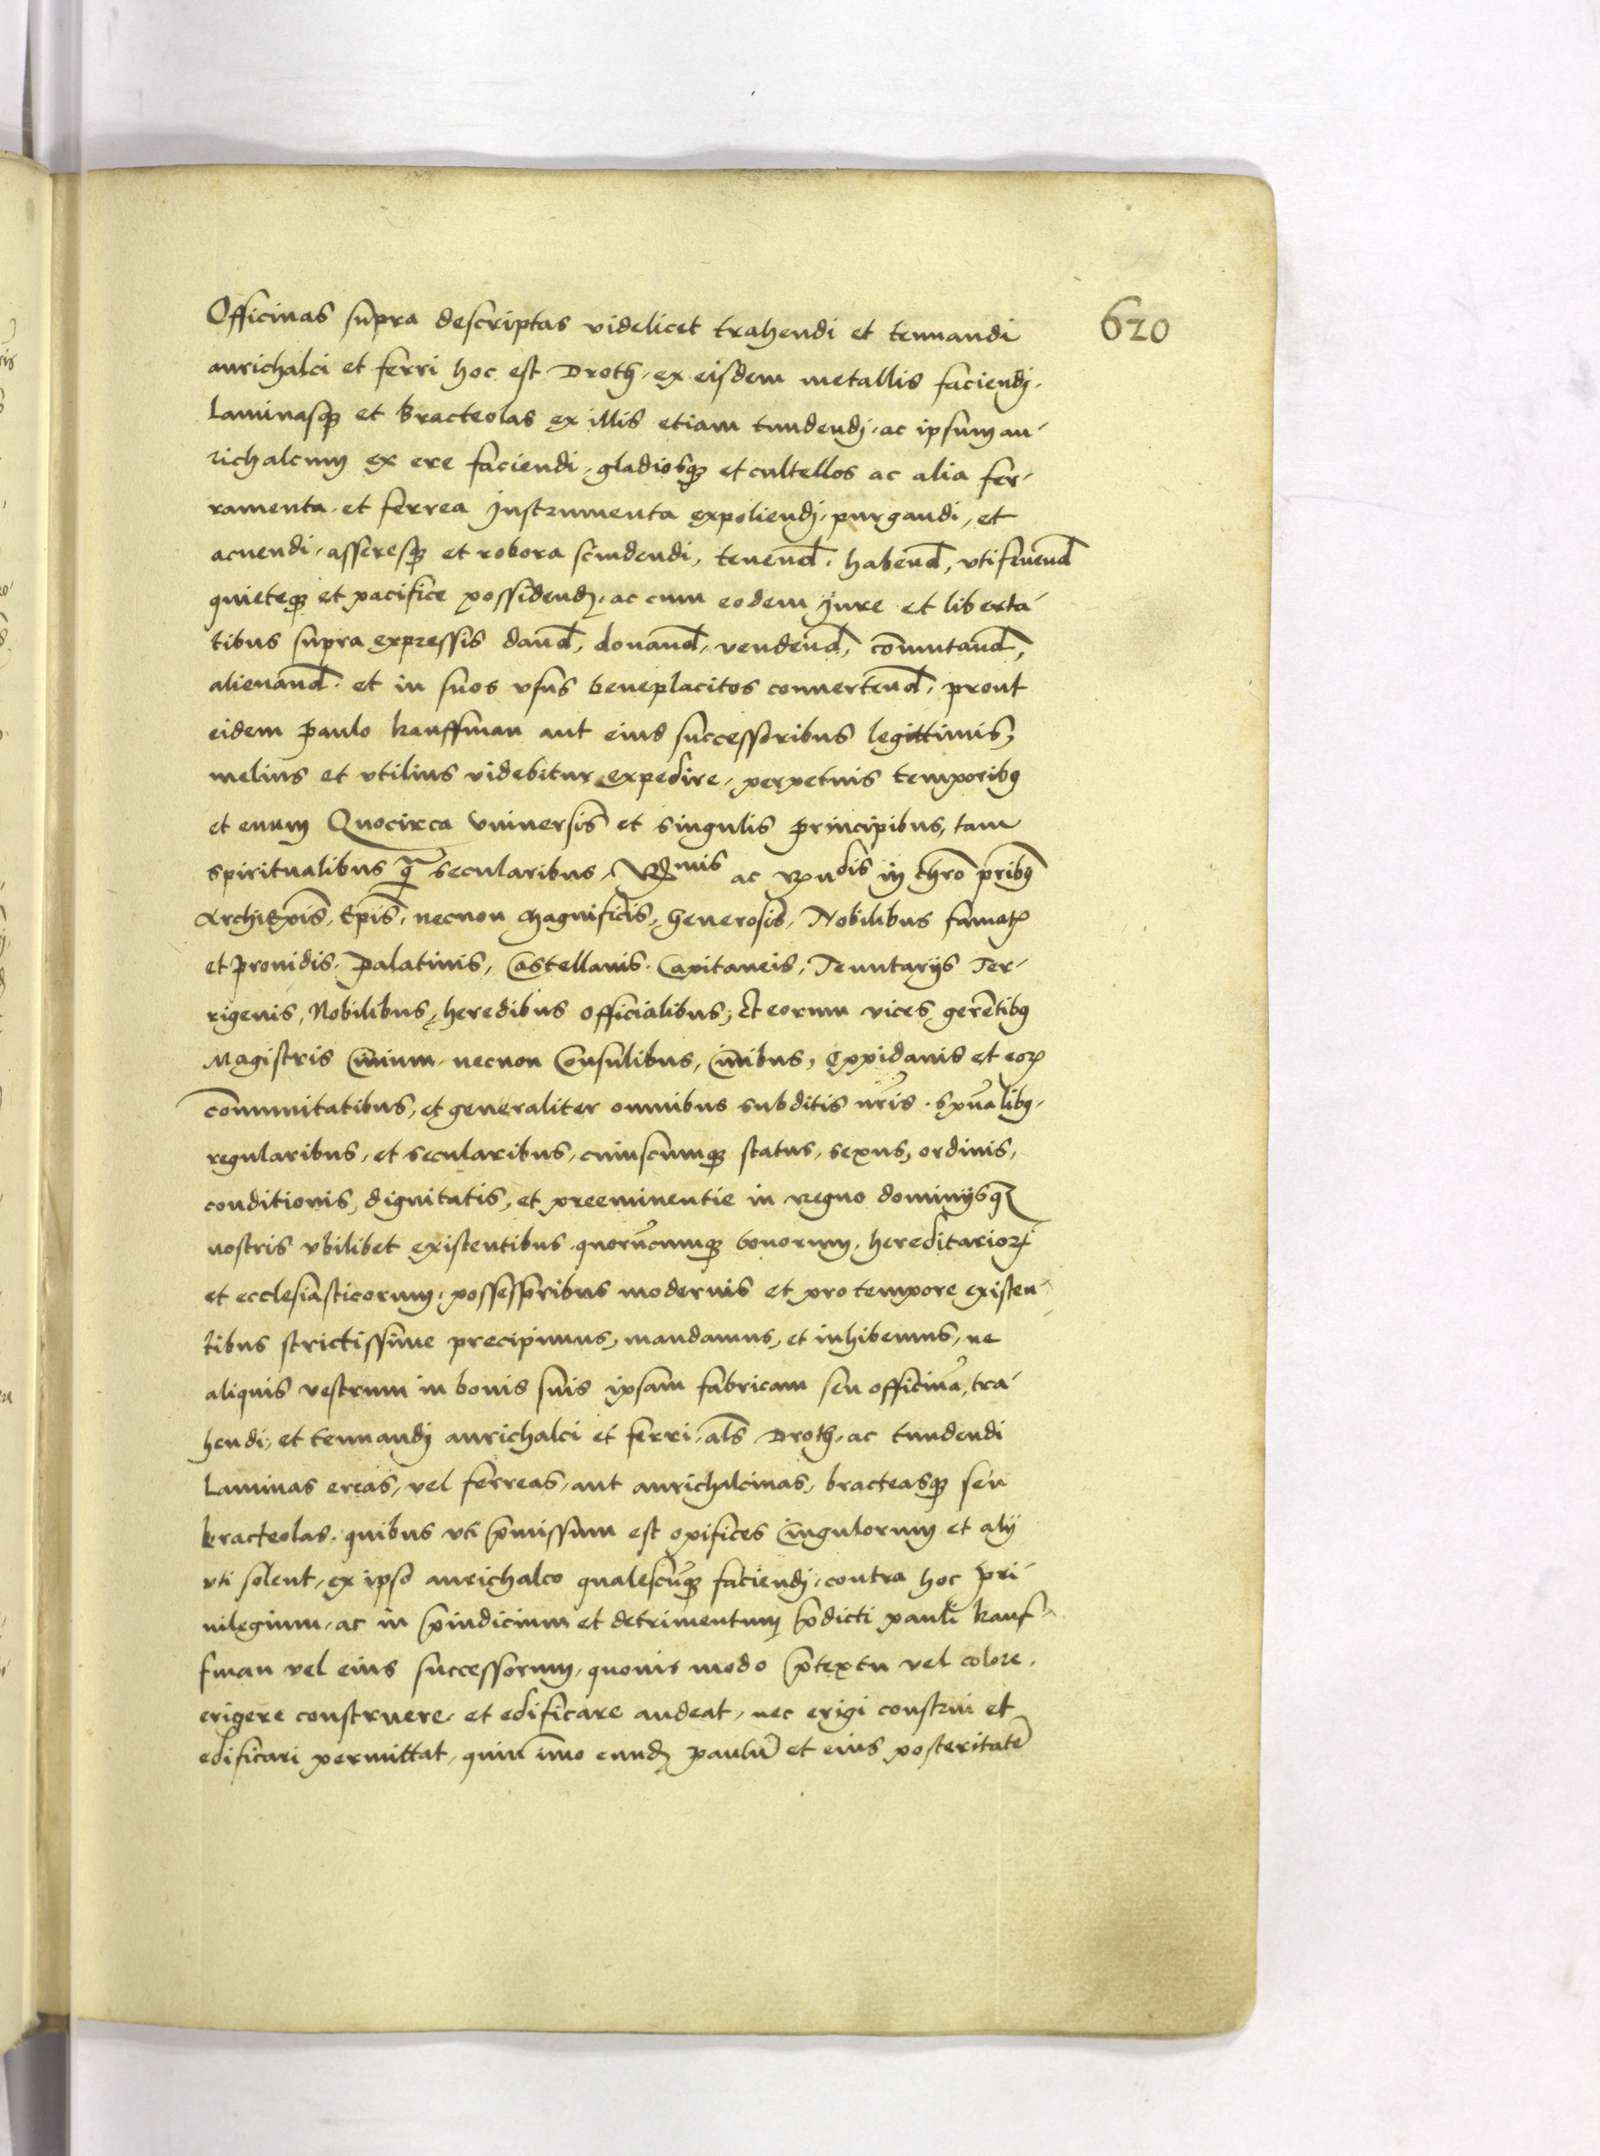 620
Officinas supra descriptas videlicet trahendi et tenuandi
aurichalci et ferri hoc est Droth, ex eisdem metallis faciendj.
laminasq₃ et bracteolas ex illis etiam tundendj, ac ipsum au-
richalcum ex ere faciendi, gladiosq₃ et cultellos ac alia fer-
ramenta et ferrea jnstrumenta expoliendj, purgandi, et
acuendi, asseresq₃ et robora scindendi, tenend. habend, vtifruend
quieteq₃ et pacifice possidendj, ac cum eodem jure et liberta-
tibus supra expressis dand, donand, vendend, com̄utand,
alienand. et in suos vsus beneplacitos conuertend, prout
eidem Paulo kauffman aut eius successoribus legittimis,
melius et vtilius videbitur expedire, perpetuis temporibꝯ
et euum Quocirca vniuersis et singulis Principibus, tam
spiritualibus q̄ secularibus, Rmis ac Rndis in chro pribꝯ
ArchiEpis, Epis, necnon Magnificis, Generosis, Nobilibus famatꝭ
et prouidis. Palatinis, Castellanis. Capitaneis, Tenutarijs Ter-
rigenis, Nobilibus, heredibus officialibus, et eorum vices gerētibꝯ
Magistris Ciuium, necnon Consulibus, Ciuibus, Oppidanis et eoꝝ
com̄unitatibus, et generaliter omnibus subditis nr̄is. sp̄ualibꝯ.
regularibus, et secularibus, cuiuscumq₃ status, sexus, ordinis,
conditionis, dignitatis, et preeminentie in Regno dominijsq₃
nostris vbilibet existentibus. quorūcumq₃ bonorum, hereditarioꝝ
et ecclesiasticorum, possessoribus modernis et pro tempore existen-
tibus strictissime precipimus, mandamus, et inhibemus, ne
aliquis vestrum in bonis suis ipsam fabricam seu officinā, tra-
hendi, et tenuandj aurichalci et ferri, als Droth, ac tundendi
laminas ereas, vel ferreas, aut aurichalcinas, bracteasq₃ seu
bracteolas. quibus vti p̄missum est opifices cingulorum et alij
vti solent, ex ipso aurichalco qualescūq₃ faciendj, contra hoc pri-
uilegium, ac in p̄iudicium et detrimentum p̄dicti Pauli kauf-
fman vel eius successorum, quouis modo p̄textu vel colore.
erigere construere, et edificare audeat, nec erigi construi et
edificari permittat, quin im̄o eundꝫ Paulū et eius posteritatē